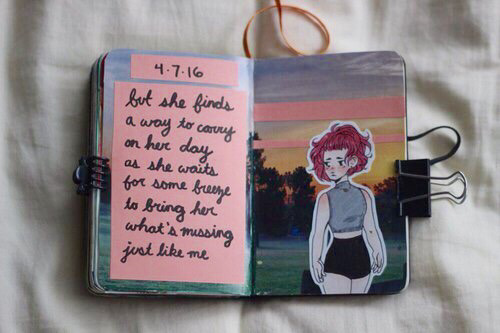 4.7.16
but she finds
a way to carry
on her day
as she waits
for some breeze
to bring her
what's missing
just like me